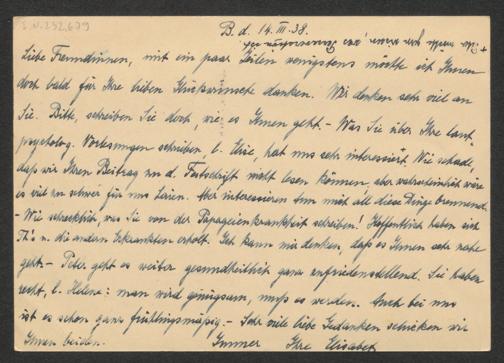 I.N. 232.679
B. d. 14. III. 38.
Liebe Freundinnen, mit ein paar Zeilen wenigstens möchte ich Ihnen
doch bald für Ihre lieben Glückwünsche danken. Wir denken sehr viel an
Sie. Bitte, schreiben Sie doch, wie es Ihnen geht. - Was Sie über Ihre laut-
psycholog. Vorlesungen schreiben, l. Elise, hat uns sehr interessiert. Wie schade,
daß wir Ihren Beitrag zu d. Festschrift nicht lesen können, aber wahrscheinlich wäre
es viel zu schwer für uns Laien. Aber interessieren tun mich all diese Dinge brennend.
- Wie schrecklich, was Sie von der Papageienkrankheit schreiben! Hoffentlich haben sich
u. die andern Erkrankten erholt. Ich kann mir denken, daß es Ihnen sehr nahe
geht. - Peter geht es weiter gesundheitlich ganz zufriedenstellend. Sie haben
recht, l. Helene: man wird genügsam, muß es werden. Auch bei uns
ist es schon ganz frühlingsmäßig. - Sehr viele liebe Gedanken schicken wir
Ihnen beiden. Immer Ihre Elisabet